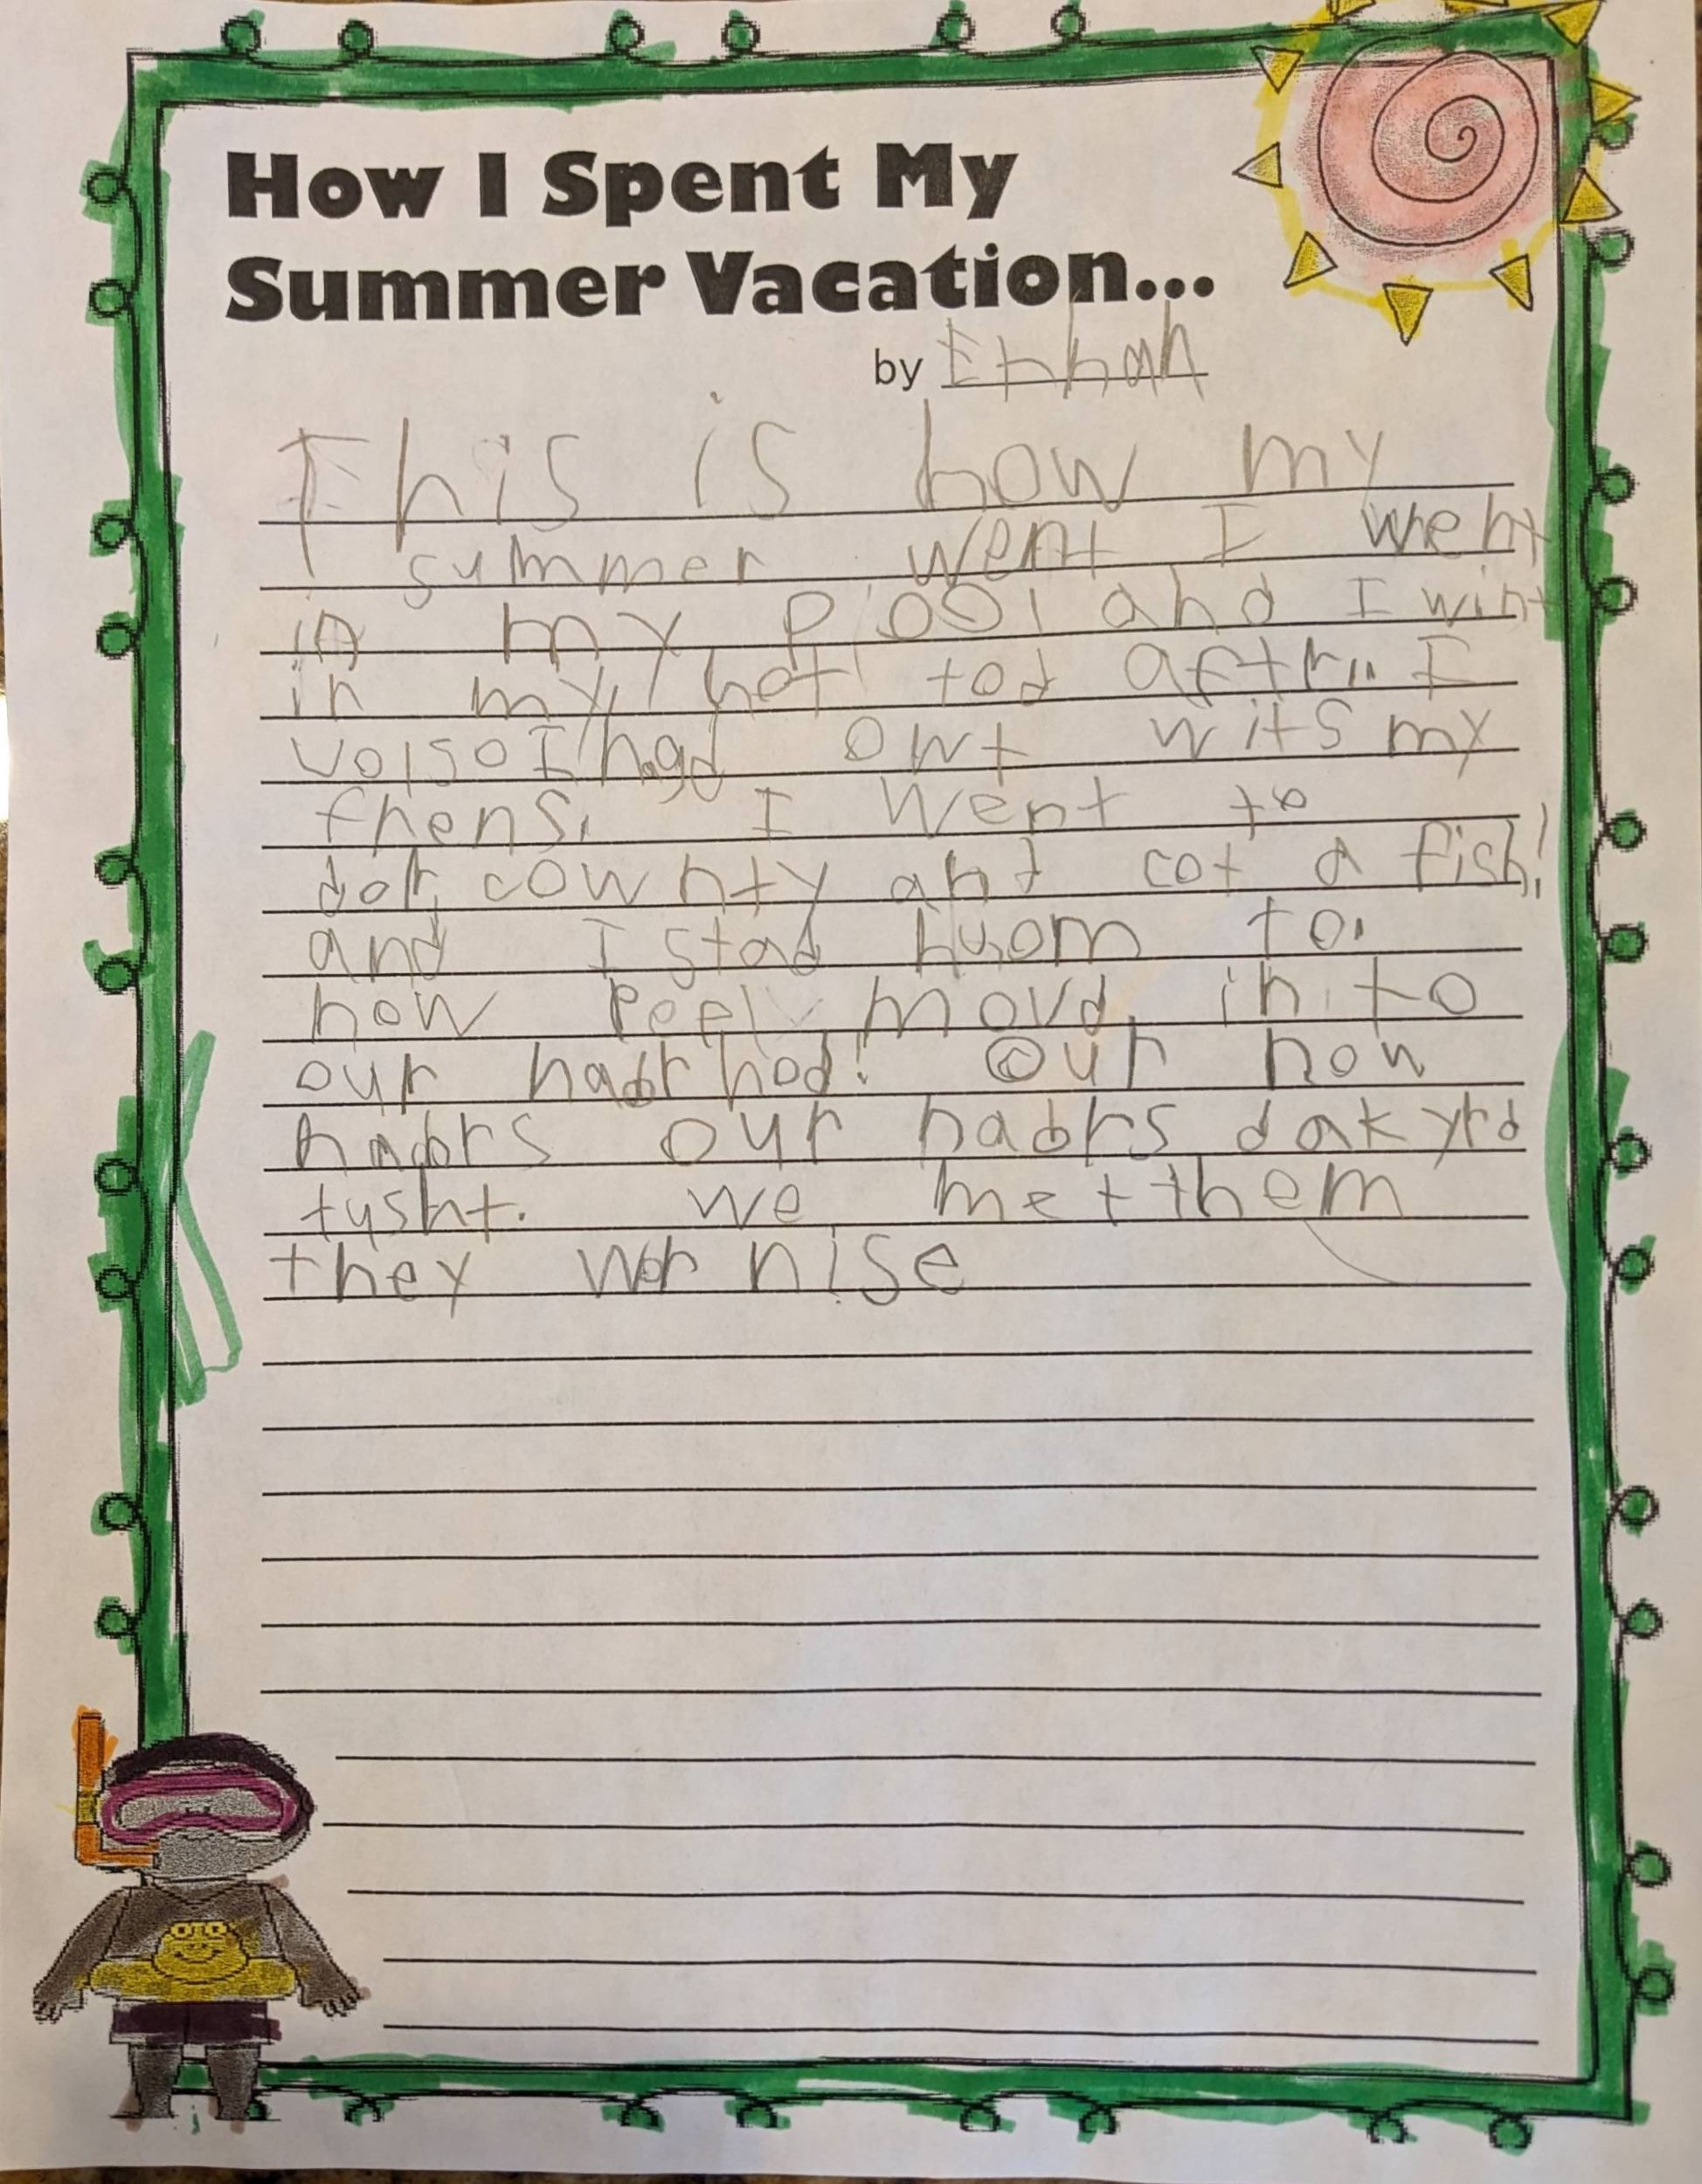 How I Spent My
Summer Vacation...
by Ethhah
This is how my
summer went I went
in my pool and I wint
in my hot tod aftr.. I
volsoI hagd owt wits my
fhens. I went to
dor cownty and cot a fish!
and I stad huom to.
now Peepl movd in to
our nabrhod! Our now
nabrs our nabrs dakyrd
tysht. we met them
they wor nise
OTO